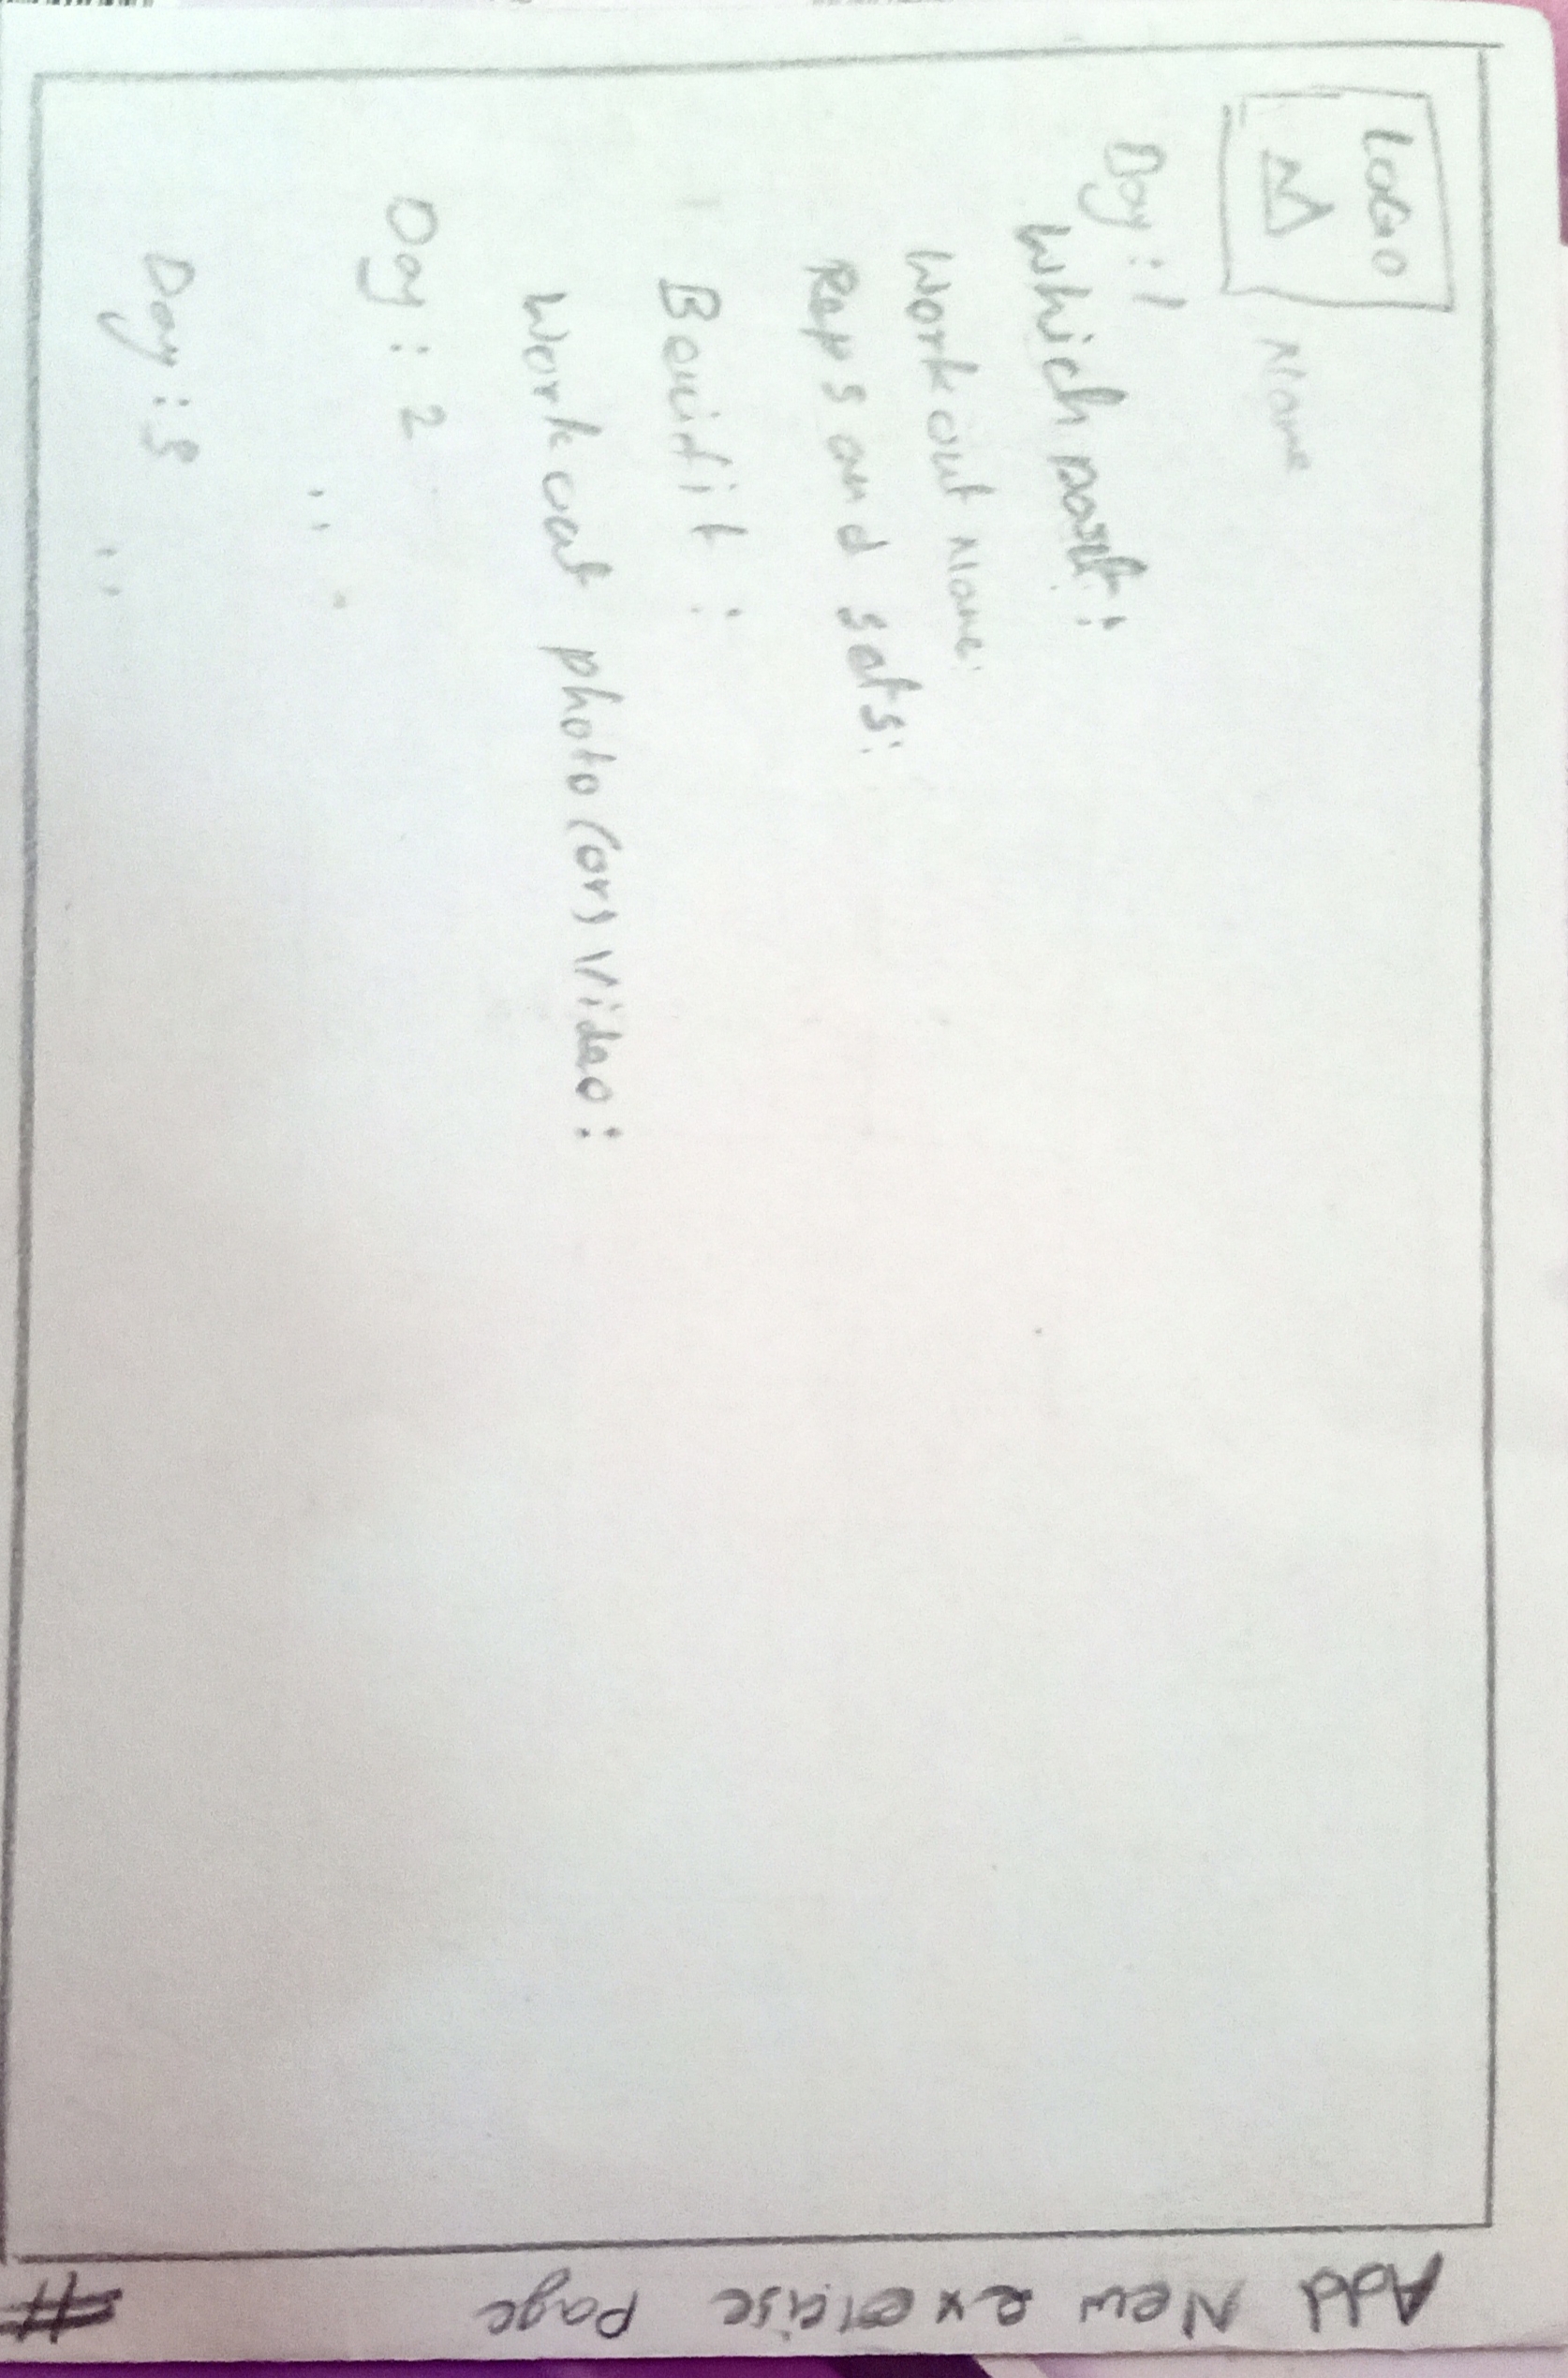 LOGO
Name
Day : 1
Which part :
Workout Name:
Reps and sets:
Benifit :
Workout photo (or) Video :
Day : 2
,, "
Day : 3
,,
Add New exercise Page
#